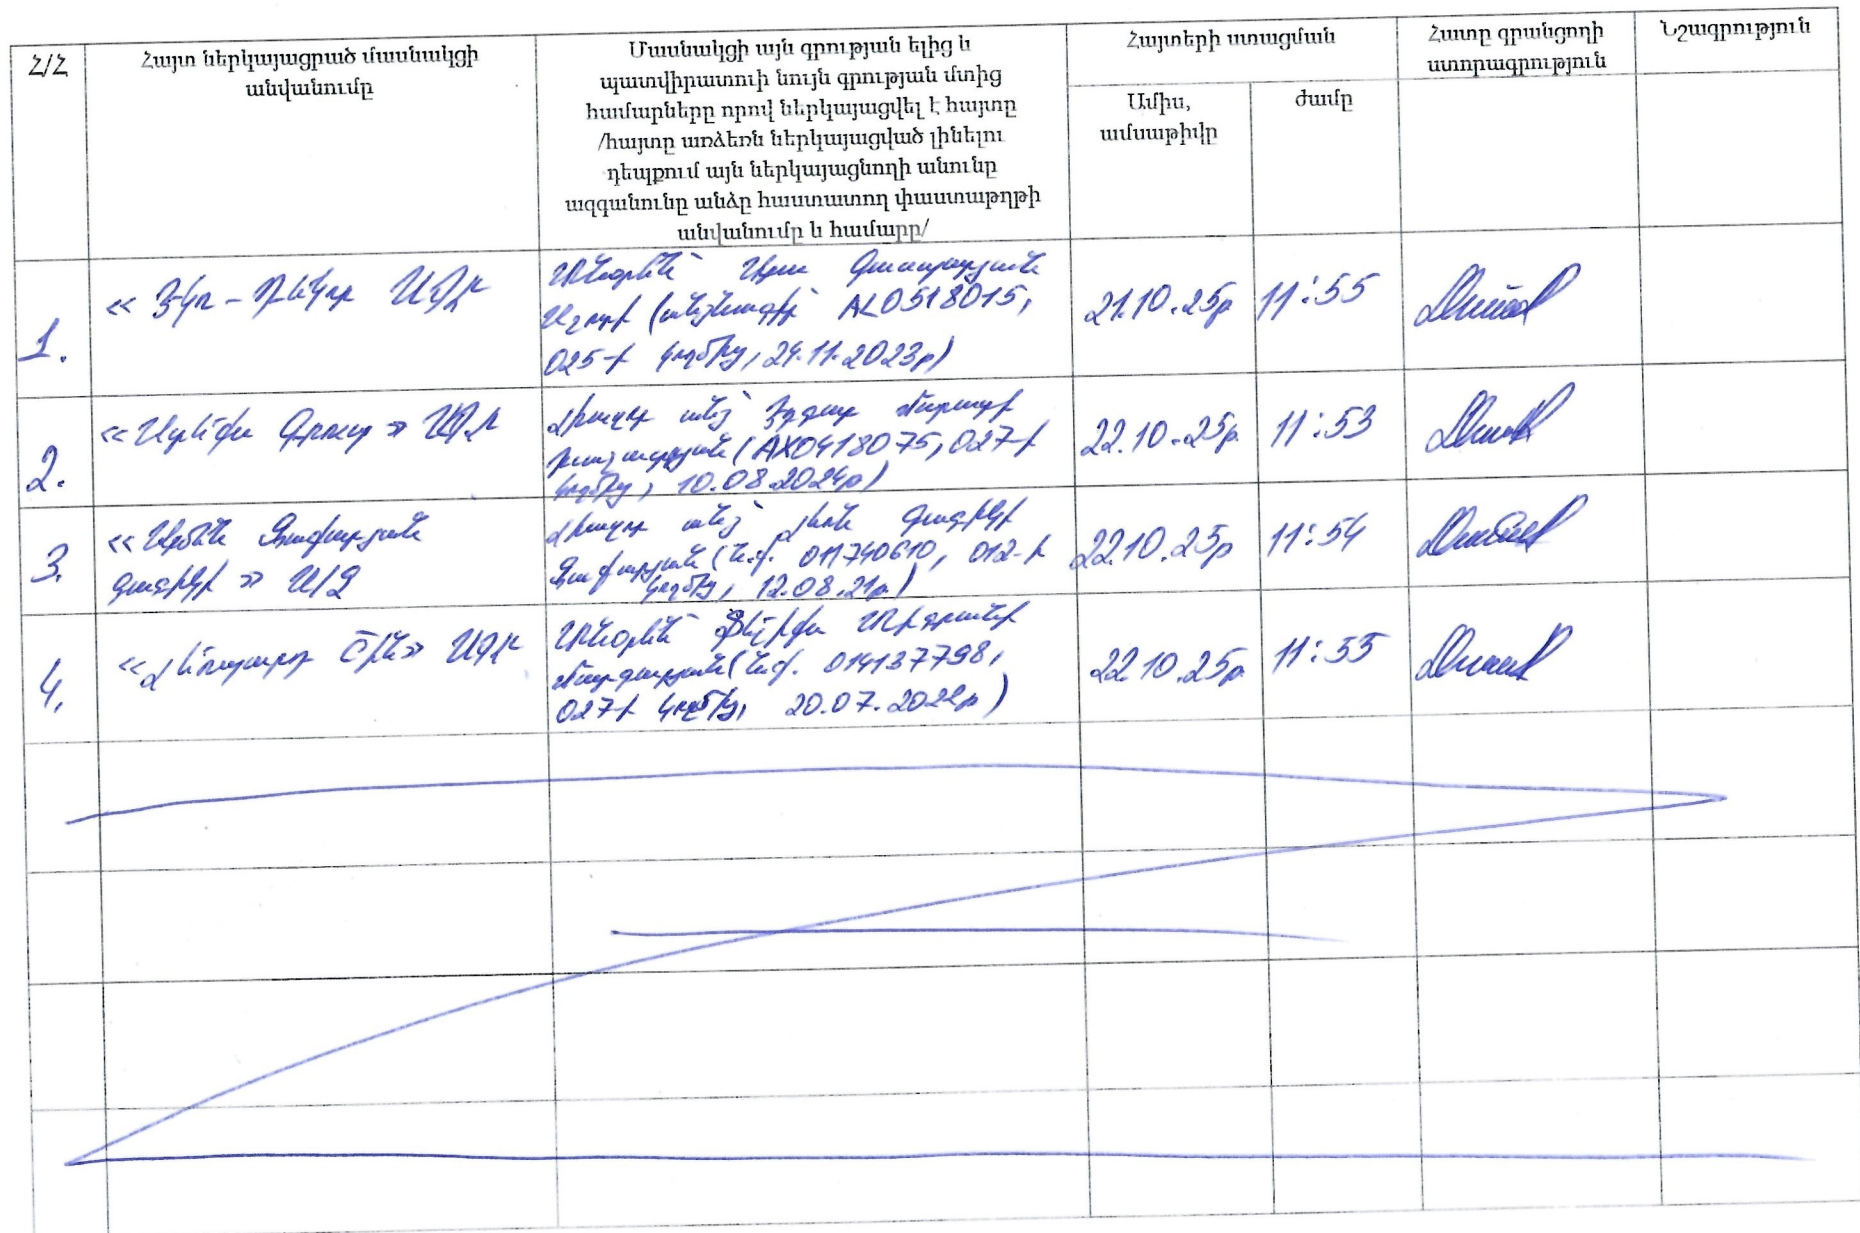 Հ/Հ
Հայտ ներկայացրած մասնակցի
անվանումը
Մասնակցի այն գրության ելից և
պատվիրատուի նույն գրության մտից
համարները որով ներկայացվել է հայտը
/հայտը առձեռն ներկայացված լինելու
դեպքում այն ներկայացնողի անունը
ազգանունը անձը հաստատող փաստաթղթի
անվանումը և համարը/
Հայտերի ստացման
Ամիս,
ամսաթիվը
ժամը
Հատը գրանցողի
ստորագրություն
Նշագրություն
1.
«Էկո-Դեկոր ՍՊԸ
Տնօրեն՝ Արա Գասպարյան
Աշոտի (անձնագիր AL0518015,
025-ի կողմից, 24.11.2023թ)
21.10.25թ
11:55
2.
Գրուպ» ՍՊԸ
Լիազոր անձ՝ Էդգար Մարատի
(AX0418075, 027-ի
կողմից, 10.08.2024թ)
22.10.25թ
11:53
3.
«Արմեն Զաքարյան
Գագիկի» Ա/Ձ
Լիազոր անձ՝ Լևոն Գագիկի
Զաքարյան (ն.ք. 011740610, 012-ի
կողմից, 12.08.21թ)
22.10.25թ
11:54
4.
«Լեոպարդ Շին» ՍՊԸ
Տնօրեն՝ Տիգրանի
Մարգարյան (ն.ք. 014137798,
027-ի կողմից, 20.07.2022թ)
22.10.25թ
11:55